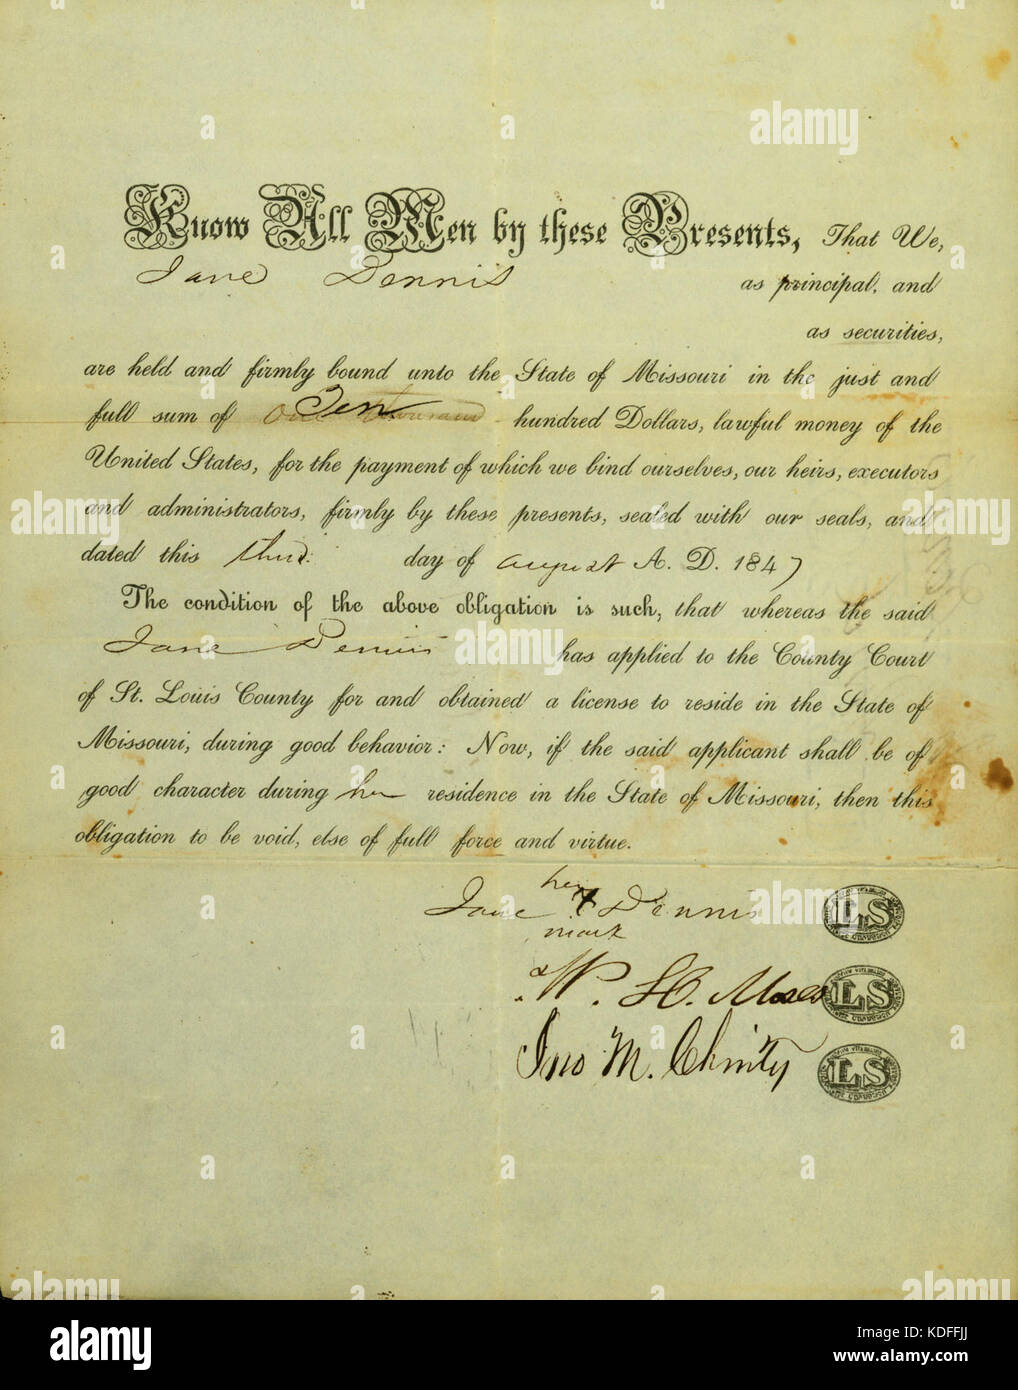 Know All Men by these Presents, That We,
Jane Dennis as principal, and
as securities,
are held and firmly bound unto the State of Missouri in the just and
full sum of One Thousand Ten hundred Dollars, lawful money of the
United States, for the payment of which we bind ourselves, our heirs, executors
and administrators, firmly by these presents, sealed with our seals, and
dated this third day of august A. D. 1847
The condition of the above obligation is such, that whereas the said
Jane Dennis has applied to the County Court
of St. Louis County for and obtained a license to reside in the State of
Missouri, during good behavior: Now, if the said applicant shall be of
good character during her residence in the State of Missouri, then this
obligation to be void, else of full force and virtue.
her
Jane X Dennis LS
mark
W. H. LS
Jno M. LS
alamy
Image ID: KDFFJJ
www.alamy.com